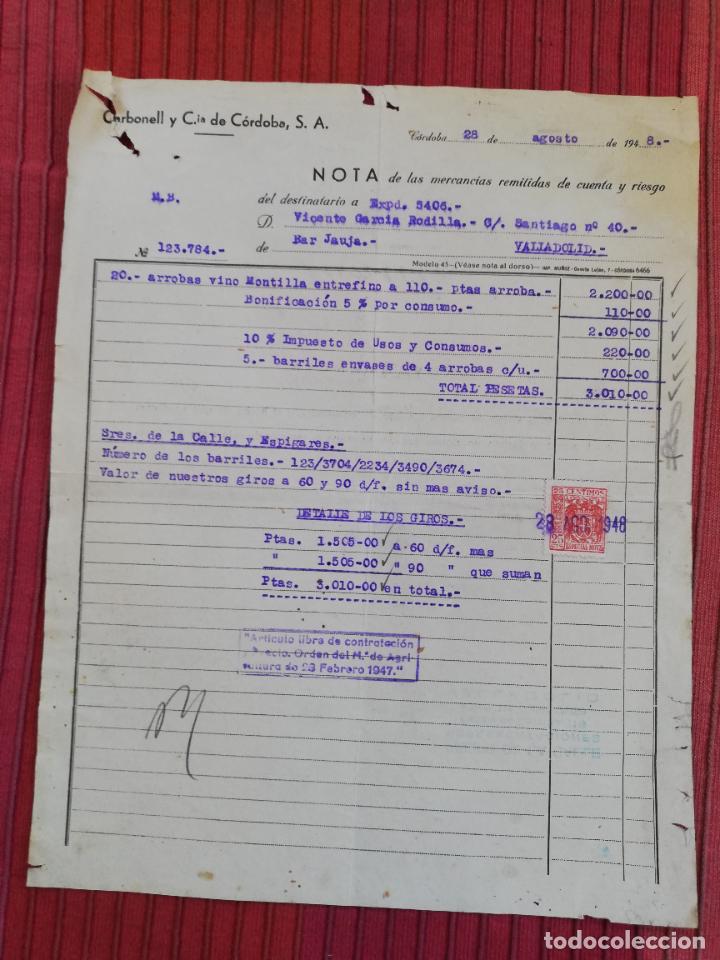 Carbonell y C.ia de Córdoba, S. A.
Córdoba 28 de agosto de 1948.-
NOTA de las mercancías remitidas de cuenta y riesgo
M.B. del destinatario a Expd. 5406.-
D. Vicente Garcia Rodilla.- C/. Santiago nº 40.-
№ 123.784.- de Bar Jauja.- VALLADOLID.-
Modelo 45-(Véase nota al dorso)-
20.- arrobas vino Montilla entrefino a 110.- ptas arroba.- 2.200-00
Bonificación 5 % por consumo.- 110-00
2.090-00
10 % Impuesto de Usos y Consumos.- 220-00
5.- barriles envases de 4 arrobas c/u.- 700-00
TOTAL PESETAS. 3.010-00
Sres. de la Calle, y Espigares.-
Número de los barriles.- 123/3704/2234/3490/3674.-
Valor de nuestros giros a 60 y 90 d/f. sin mas aviso.-
25 CENTIMOS
28 AGO. 1948
25
ESPECIAL MOVIL
DETALLE DE LOS GIROS.-
Ptas. 1.505-00 a 60 d/f. mas
" 1.505-00 " 90 " que suman
Ptas. 3.010-00 en total.-
"Artículo libre de contratación
Orden del M.º de Agri-
cultura de 28 Febrero 1947."
todocoleccion.net